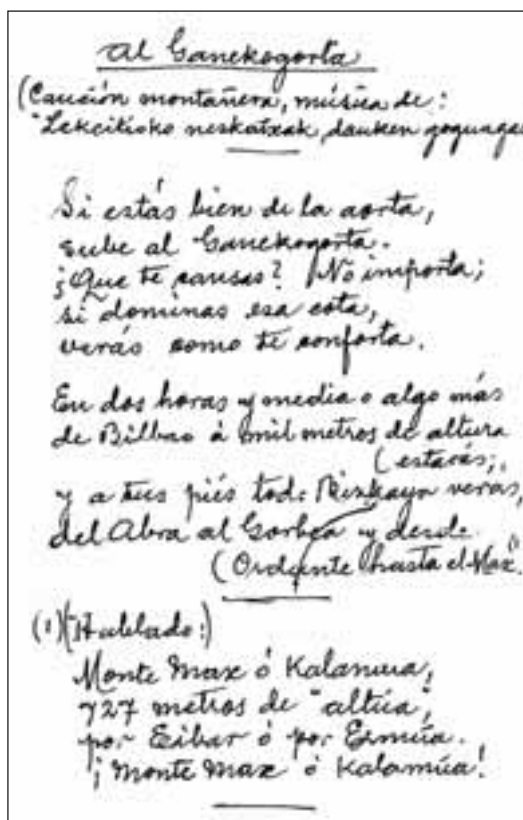 Al Ganekogorta
(Canción montañera, música de:
"Lekeitioko neskatxak, dauken
Si estás bien de la aorta,
sube al Ganekogorta.
¿Que te cansas? No importa;
si dominas esa cota,
verás como te conforta.
En dos horas y media o algo más
de Bilbao á mil metros de altura
(estarás;
y a tus piés toda Bizkaya verás,
del Abra al Gorbea y desde
(Ordunte hasta el Max.
(1) (Hablado:)
Monte Max ó Kalamua,
727 metros de "altúa",
por Eibar ó por Ermúa.
¡Monte Max ó Kalamúa!